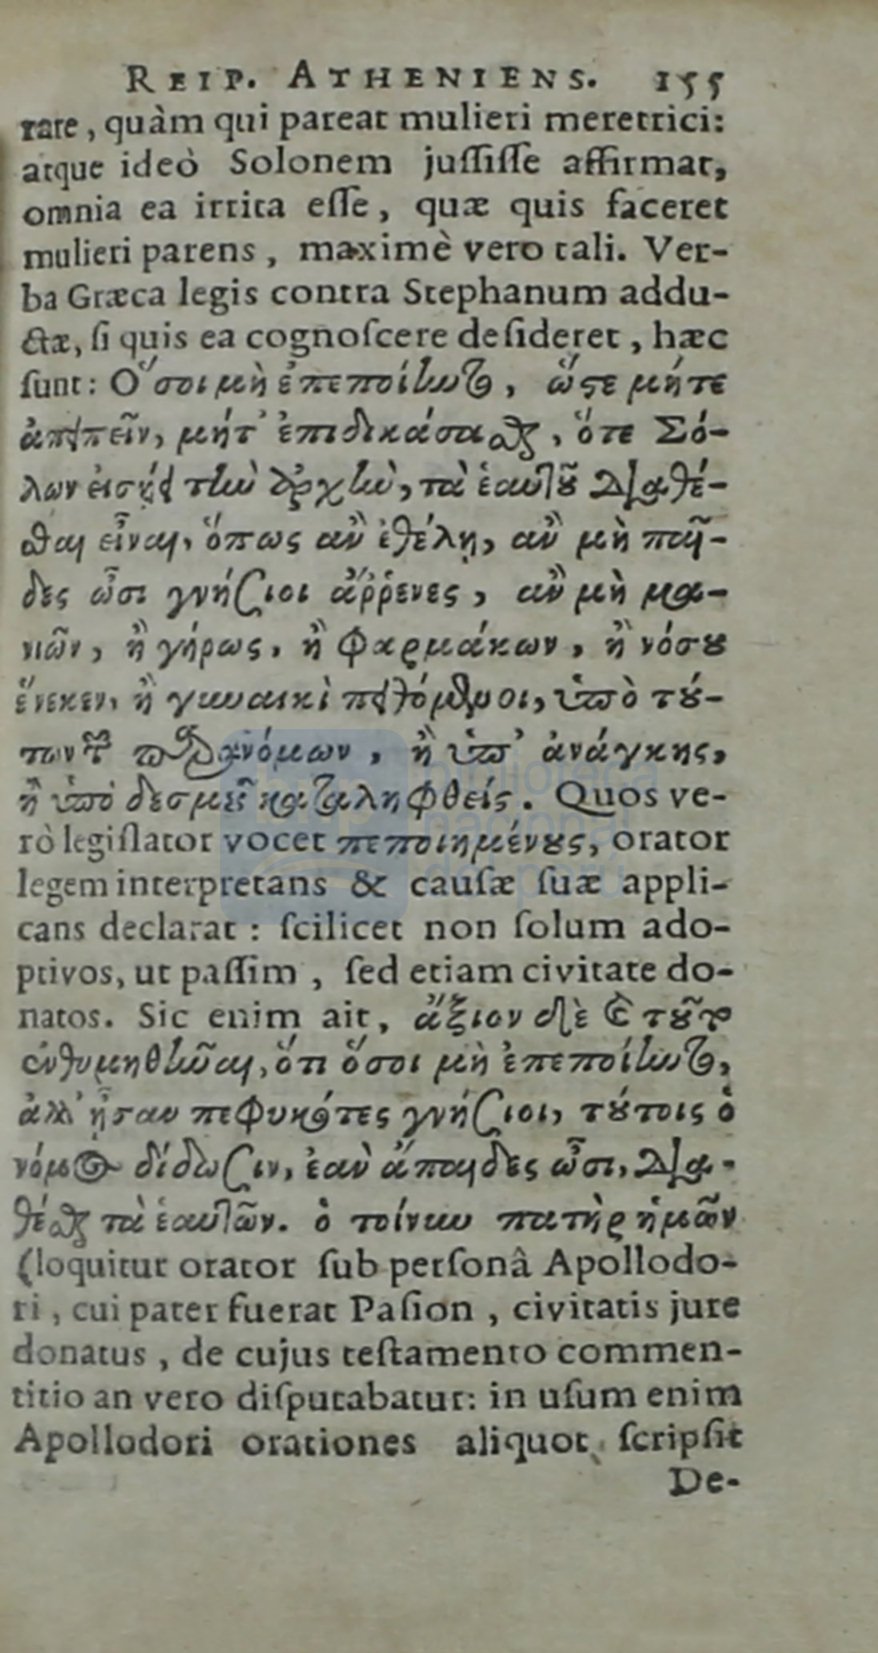 REIP. ATHENIENS. 155
rare, quàm qui pareat mulieri meretrici:
atque ideò Solonem jussisse affirmat,
omnia ea irrita esse, quæ quis faceret
mulieri parens, maximè vero tali. Ver-
ba Græca legis contra Stephanum addu-
ctæ, si quis ea cognoscere desideret, hæc
sunt: Ὅσοι μὴ ἐπεποίωντο, ὥστε μήτε
ἀπειπεῖν, μήτ' ἐπιδικάσασθαι, ὅτε Σό-
λων εἰσῄει τὼ ἀρχὼ, τὰ ἑαυτοῦ διαθέ-
σθαι εἶναι, ὅπως ἂν ἐθέλῃ, ἂν μὴ παῖ-
δες ὦσι γνήσιοι ἄῤῥενες, ἂν μὴ μα-
νιῶν, ἢ γήρως, ἢ φαρμάκων, ἢ νόσου
ἕνεκεν, ἢ γυναικὶ πειθόμενοι, ὑπὸ τού-
των τῶν παρανόμων, ἢ ὑπ' ἀνάγκης,
ἢ ὑπὸ δεσμοῦ καταληφθείς. Quos ve-
rò legislator vocet πεποιημένους, orator
legem interpretans & causæ suæ appli-
cans declarat: scilicet non solum ado-
ptivos, ut passim, sed etiam civitate do-
natos. Sic enim ait, ἄξιον δὲ καὶ τοῦτο
ἐνθυμηθῶαι, ὅτι ὅσοι μὴ ἐπεποίωντο,
ἀλλ' ἦσαν πεφυκότες γνήσιοι, τούτοις ὁ
νόμος δίδωσιν, ἐὰν ἄπαιδες ὦσι, δια-
θέσθαι τὰ ἑαυτῶν. ὁ τοίνυν πατὴρ ἡμῶν
(loquitur orator sub personâ Apollodo-
ri, cui pater fuerat Pasion, civitatis jure
donatus, de cujus testamento commen-
titio an vero disputabatur: in usum enim
Apollodori orationes aliquot scripsit
De-
bnp biblioteca
nacional
del perú